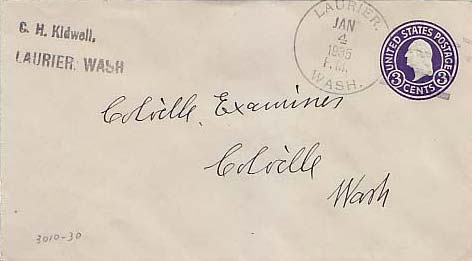 C. H. Kidwell,
LAURIER, WASH
LAURIER.
JAN
4
1935
P.M.
WASH.
UNITED STATES POSTAGE
3 CENTS 3
Colville Examiner
Colville
Wash
3010-30